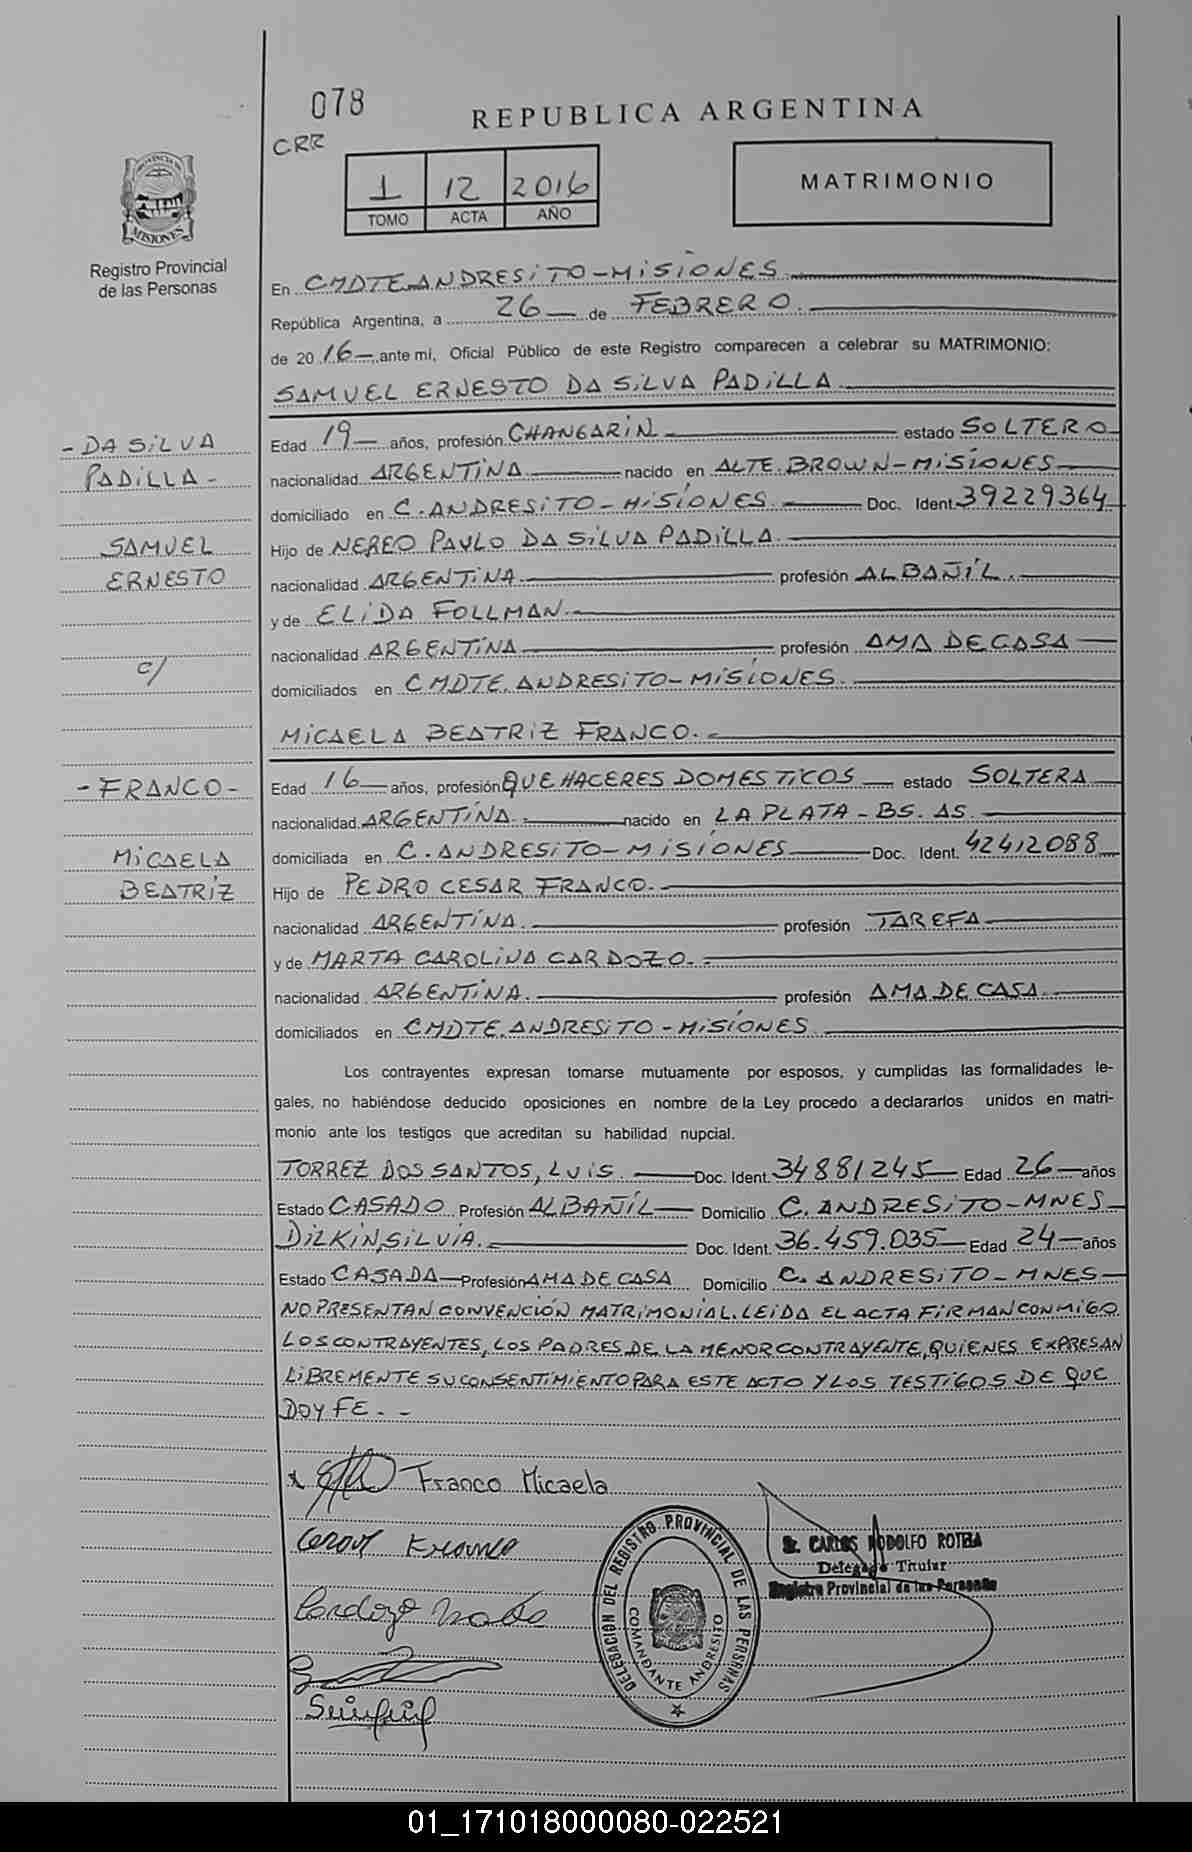 078
REPUBLICA ARGENTINA
CRR
1 12 2016
TOMO ACTA AÑO
MATRIMONIO
PROVINCIA DE MISIONES
Registro Provincial
de las Personas
En CMDTE ANDRESITO - MISIONES
República Argentina, a 26 de FEBRERO.
de 2016 ante mi, Oficial Público de este Registro comparecen a celebrar su MATRIMONIO:
SAMUEL ERNESTO DA SILVA PADILLA
- DA SILVA
PADILLA -
SAMUEL
ERNESTO
c/
Edad 19 años, profesión CHANGARIN estado SOLTERO
nacionalidad ARGENTINA nacido en ALTE. BROWN - MISIONES
domiciliado en C. ANDRESITO - MISIONES. Doc. Ident. 39229364
Hijo de NEREO PAULO DA SILVA PADILLA.
nacionalidad ARGENTINA. profesión ALBAÑIL.
y de ELIDA FOLLMAN.
nacionalidad ARGENTINA profesión AMA DE CASA
domiciliados en CMDTE. ANDRESITO - MISIONES.
MICAELA BEATRIZ FRANCO. -
- FRANCO -
MICAELA
BEATRIZ
Edad 16 años, profesión QUEHACERES DOMESTICOS estado SOLTERA
nacionalidad ARGENTINA. nacido en LA PLATA - BS. AS.
domiciliada en C. ANDRESITO - MISIONES Doc. Ident. 42412088
Hijo de PEDRO CESAR FRANCO.
nacionalidad ARGENTINA. profesión TAREFA
y de MARTA CAROLINA CARDOZO. -
nacionalidad ARGENTINA. profesión AMA DE CASA
domiciliados en CMDTE. ANDRESITO - MISIONES
Los contrayentes expresan tomarse mutuamente por esposos, y cumplidas las formalidades le-
gales, no habiéndose deducido oposiciones en nombre de la Ley procedo a declararlos unidos en matri-
monio ante los testigos que acreditan su habilidad nupcial.
TORREZ DOS SANTOS, LUIS. Doc. Ident. 34881245 Edad 26 años
Estado CASADO Profesión ALBAÑIL Domicilio C. ANDRESITO - MNES
DILKIN, SILVIA. Doc. Ident. 36.459.035 Edad 24 años
Estado CASADA Profesión AMA DE CASA Domicilio C. ANDRESITO - MNES
NO PRESENTAN CONVENCIÓN MATRIMONIAL. LEIDA EL ACTA FIRMAN CONMIGO
LOS CONTRAYENTES, LOS PADRES DE LA MENOR CONTRAYENTE, QUIENES EXPRESAN
LIBREMENTE SU CONSENTIMIENTO PARA ESTE ACTO Y LOS TESTIGOS DE QUE
DOY FE. -
Franco Micaela
Sr. CARLOS RODOLFO ROTELA
Delegado Titular
Registro Provincial de las Personas
DELEGACION DEL REGISTRO PROVINCIAL DE LAS PERSONAS
COMANDANTE ANDRESITO
01_171018000080-022521